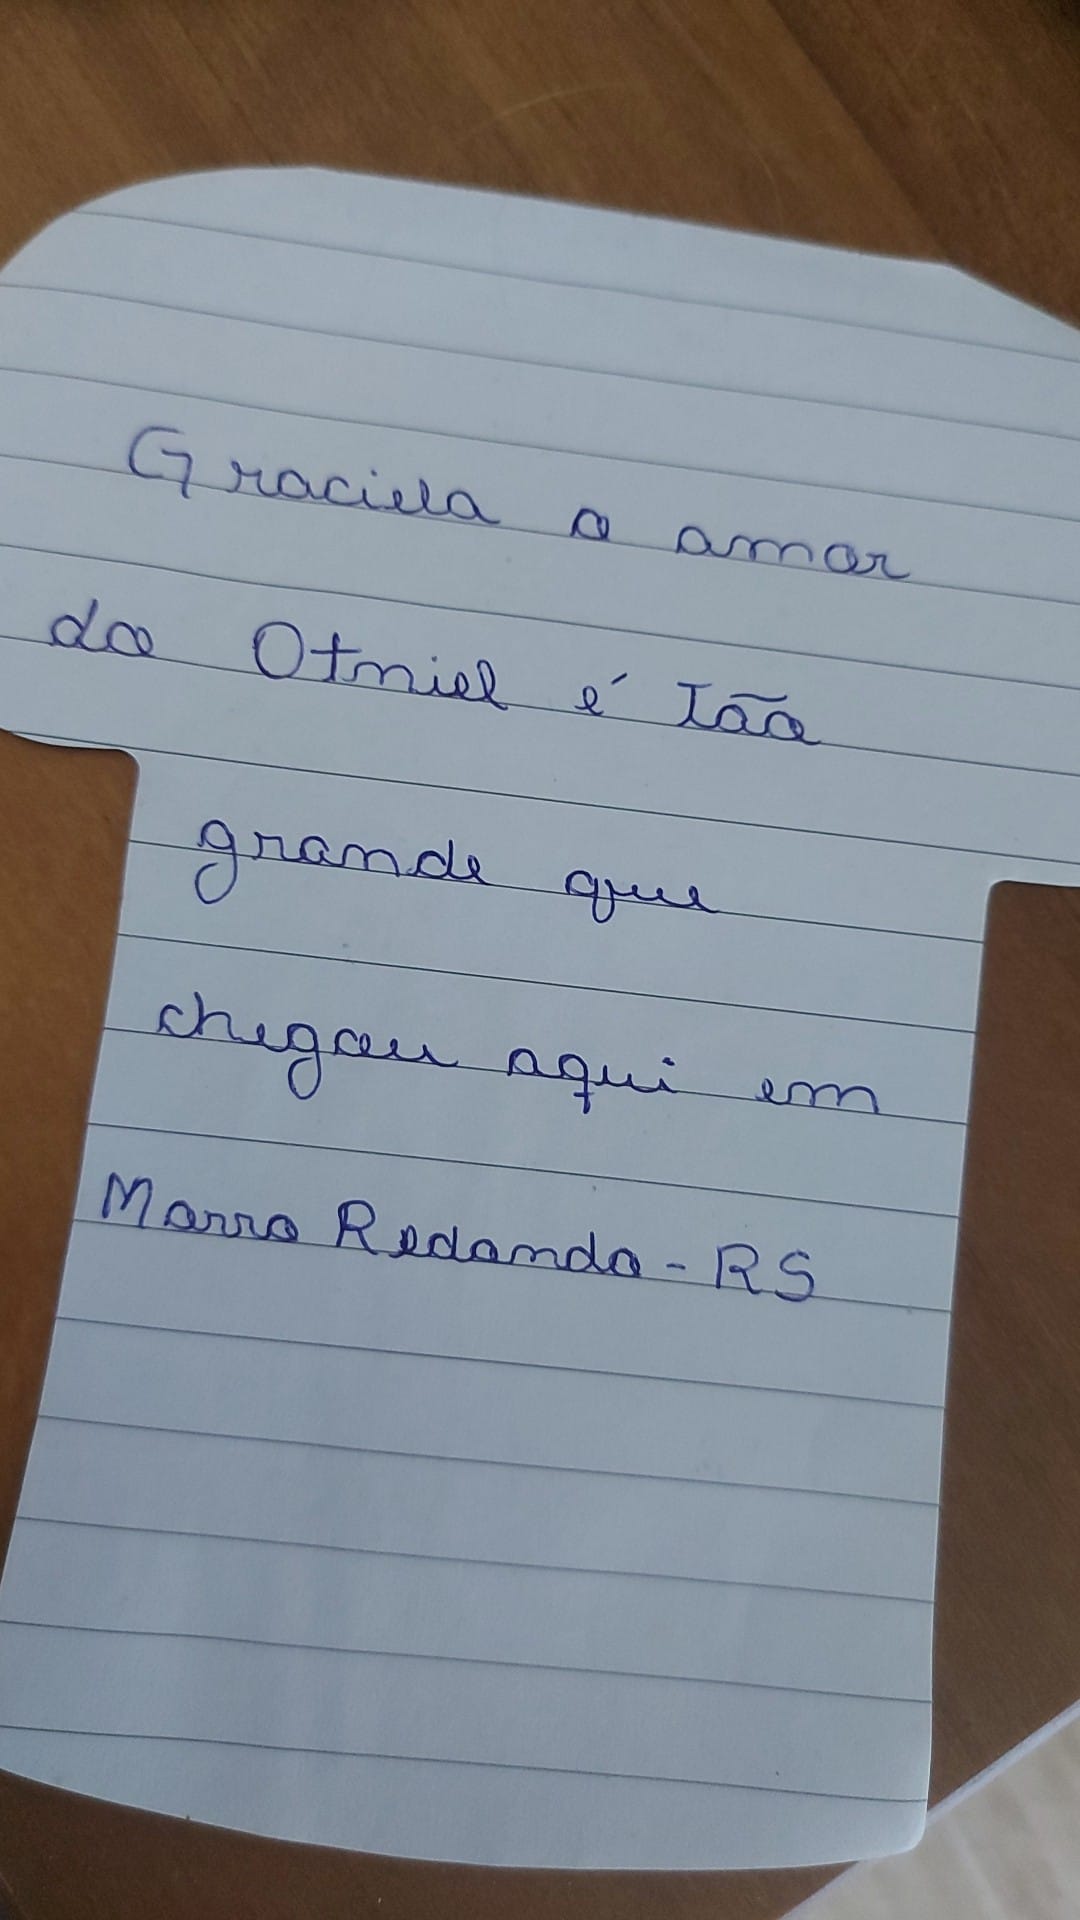 Graciela o amor
do Otniel é Tão
grande que
chegou aqui em
Morro Redondo - RS